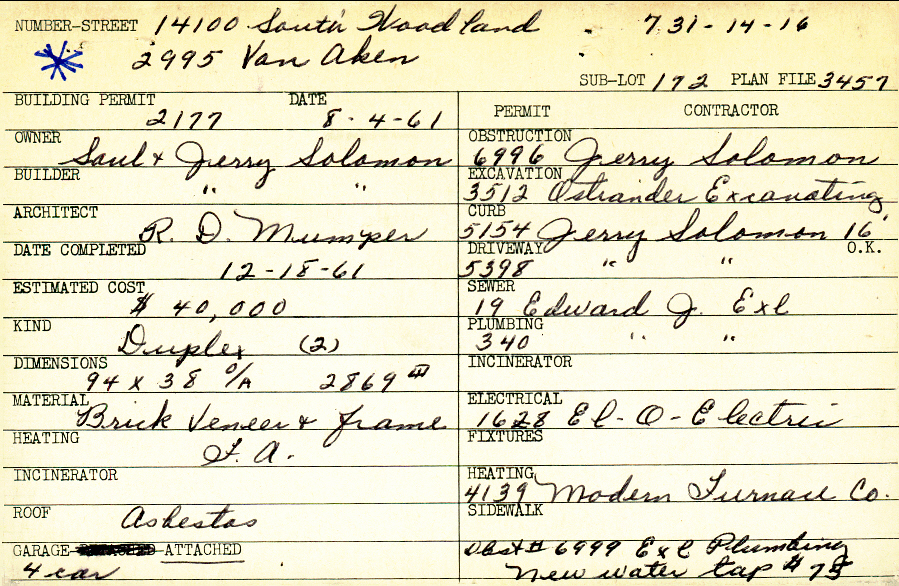 NUMBER-STREET 14100 South Woodland 731-14-16
2995 Van Aken
SUB-LOT 172 PLAN FILE 3457
BUILDING PERMIT DATE
2177 8-4-61
OWNER
Saul & Jerry Solomon
BUILDER
" "
ARCHITECT
R. D. Mumper
DATE COMPLETED
12-18-61
ESTIMATED COST
$ 40,000
KIND
Duplex (2)
DIMENSIONS
94 x 38 O/A 2869
MATERIAL
Brick Veneer & frame
HEATING
F. A.
INCINERATOR
ROOF
Asbestos
GARAGE ATTACHED
4 car
PERMIT CONTRACTOR
OBSTRUCTION
6996 Jerry Solomon
EXCAVATION
3512 Ostrander Excavating
CURB
5154 Jerry Solomon 16'
DRIVEWAY O.K.
5398 " "
SEWER
19 Edward J. Exl
PLUMBING
340 " "
INCINERATOR
ELECTRICAL
1628 El-O-Electric
FIXTURES
HEATING
4139 Modern Furnace Co.
SIDEWALK
Obst # 6999 Exl Plumbing
New water tap # 75